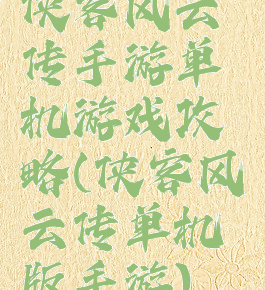 侠客风云
传手游单
机游戏攻
略(侠客风
云传单机
版手游)